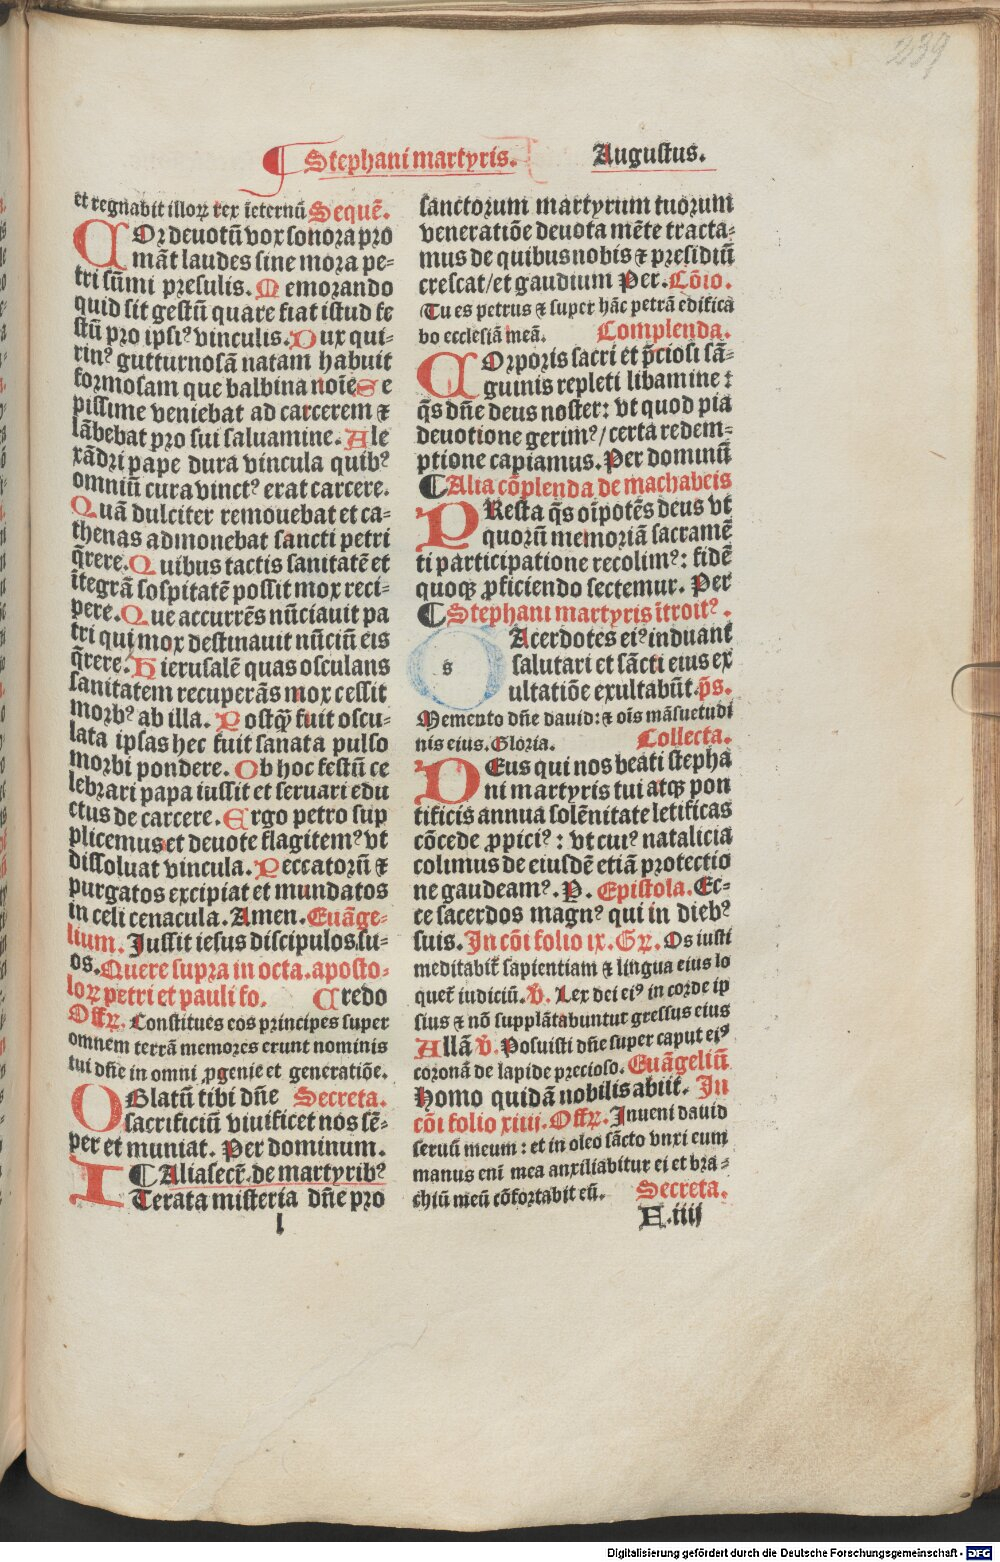 239
¶ Stephani martyris. Augustus.
et regnabit illoꝝ rex īeternū Sequē.
COr deuotū vox sonora pro
māt laudes sine mora pe⸗
tri sūmi presulis. Memorando
quid sit gestū quare fiat istud fe
stū pro ipsiꝰ vinculis. Dux qui⸗
rinꝰ gutturnosam natam habuit
formosam que balbina noīe Se
pissime veniebat ad carcerem ⁊
lābebat pro sui saluamine. Ale
xādri pape dura vincula quibꝰ
omniū cura vinctꝰ erat carcere.
Quā dulciter remouebat et ca⸗
thenas admonebat sancti petri
q̄rere. Quibus tactis sanitatē et
ītegrā sospitatē possit mox reci⸗
pere. Que accurrēs nūciauit pa
tri qui mox destinauit nūciū eis
q̄rere. Hierusalē quas osculans
sanitatem recuperās mox cessit
morbꝰ ab illa. Postq̄ fuit oscu⸗
lata ipsas hec fuit sanata pulso
morbi pondere. Ob hoc festū ce
lebrari papa iussit et seruari edu
ctus de carcere. Ergo petro sup
plicemus et deuote flagitemꝰ vt
dissoluat vincula. Peccatorū ⁊
purgatos excipiat et mundatos
in celi cenacula. Amen. Euāge⸗
lium. Jussit iesus discipulos su⸗
os. Quere supra in octa. aposto⸗
loꝝ petri et pauli fo. Credo
Offꝝ. Constitues eos principes super
omnem terrā memores erunt nominis
tui dn̄e in omni ꝓgenie et generatiōe.
OBlatū tibi dn̄e Secreta.
sacrificiū viuificet nos sē⸗
per et muniat. Per dominum.
¶ Alia secr̄. de martyribꝰ
ITerata misteria dn̄e pro
l
sanctorum martyrum tuorum
veneratiōe deuota mēte tracta⸗
mus de quibus nobis ⁊ presidiū
crescat/et gaudium Per. Cōio.
Tu es petrus ⁊ super hāc petrā edifica
bo ecclesiā meā. Complenda.
COrporis sacri et p̄ciosi sā⸗
guinis repleti libamine:
q̄s dn̄e deus noster: vt quod pia
deuotione gerimꝰ/certa redem⸗
ptione capiamus. Per dominū
¶ Alia cōplenda de machabeis
PResta q̄s oīpotēs deus vt
quorū memoriā sacramē
ti participatione recolimꝰ: fidē
quoqꝫ ꝓficiendo sectemur. Per
¶ Stephani martyris ītroitꝰ.
s Acerdotes eiꝰ induant
salutari et sācti eius ex
ultatiōe exultabūt. p̄s.
Memento dn̄e dauid: ⁊ oīs māsuetudi
nis eius. Gloria. Collecta.
DEus qui nos beati stepha
ni martyris tui atqꝫ pon
tificis annua solēnitate letificas
cōcede ꝓpiciꝰ: vt cuiꝰ natalicia
colimus de eiusdē etiā protectio
ne gaudeamꝰ. P. Epistola. Ec⸗
ce sacerdos magnꝰ qui in diebꝰ
suis. In cōi folio ix. Gꝝ. Os iusti
meditabit᷑ sapientiam ⁊ lingua eius lo
quet᷑ iudiciū. v̄. Lex dei eiꝰ in corde ip
sius ⁊ nō supplātabuntur gressus eius
Allā v̄. Posuisti dn̄e super caput eiꝰ
coronā de lapide precioso. Euāgeliū
Homo quidā nobilis abiit. In
cōi folio xiiij. Offꝝ. Inueni dauid
seruū meum: et in oleo sācto vnxi eum
manus eni mea auxiliabitur ei et bra⸗
chiū meū cōfortabit eū. Secreta.
A.iiij
Digitalisierung gefördert durch die Deutsche Forschungsgemeinschaft - DFG